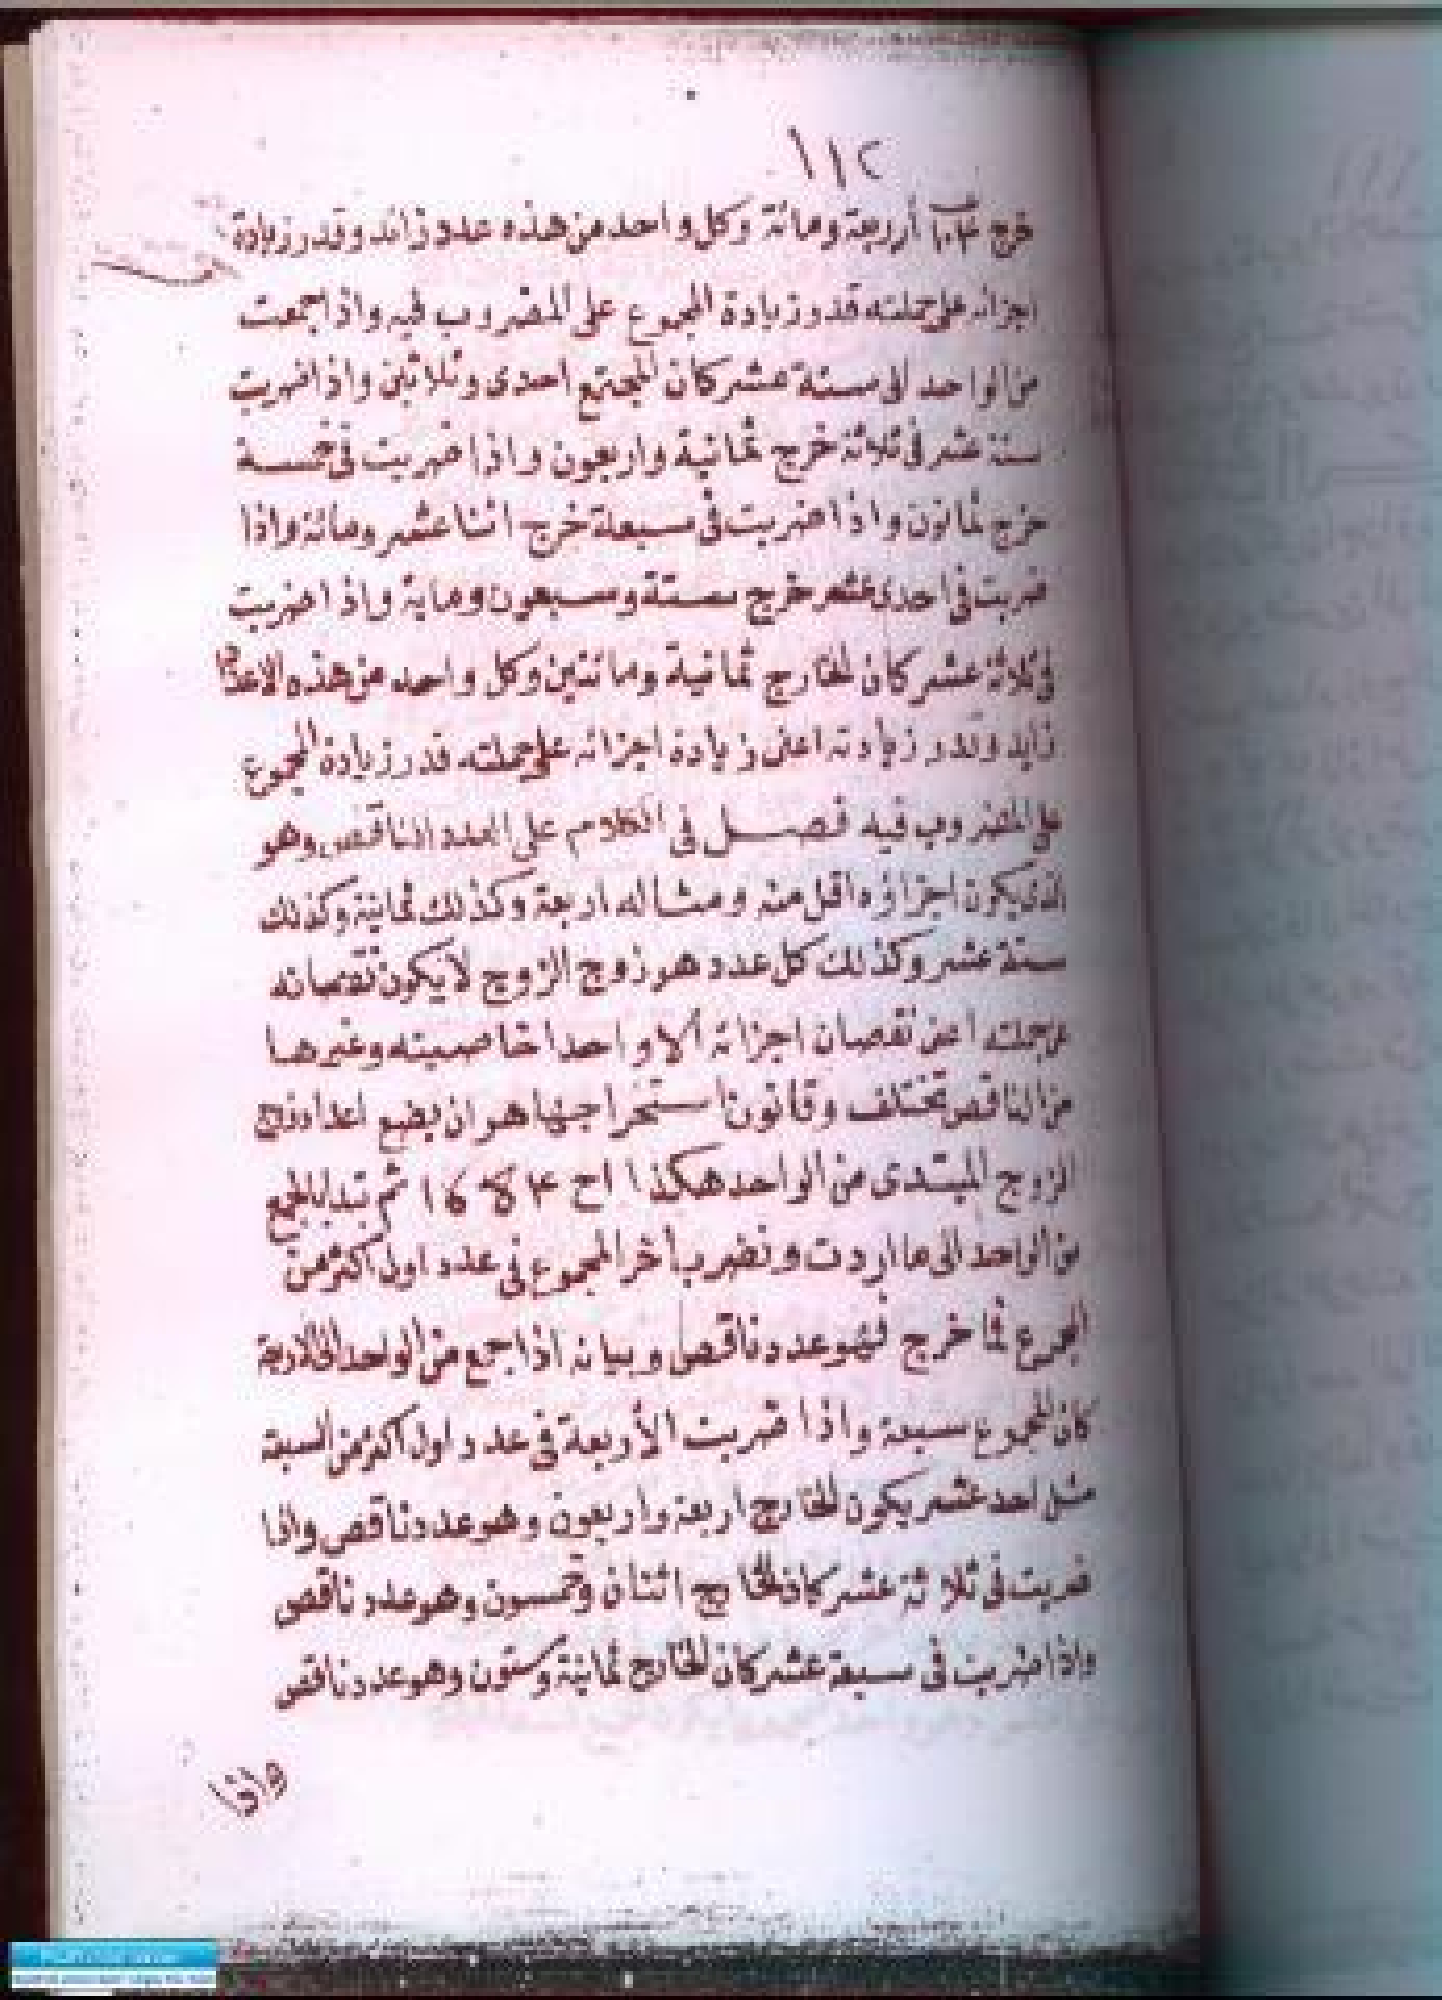 ١١٢
خرج أربعة ومائة وكل واحد من هذه عدد زائد وقدر زيادة
اجزائه على جملته قدر زيادة المجموع على المضروب فيه واذا جمعت
من الواحد الى ستة عشر كان المجتمع احدى وثلاثين واذا ضربت
ستة عشر في ثلاثة خرج ثمانية واربعون واذا ضربت في خمسة
خرج ثمانون واذا ضربت في سبعة خرج اثنا عشر ومائة واذا
ضربت في احدى عشر خرج ستة وسبعون وماية واذا ضربت
في ثلاثة عشر كان الخارج ثمانية ومائتين وكل واحد من هذه الاعداد
زايد وقدر زيادته اعنى زيادة اجزائه على جملته قدر زيادة المجموع
على المضروب فيه فصل في الكلام على العدد الناقص وهو
الذى يكون اجزاؤه اقل منه ومثاله اربعة وكذلك ثمانية وكذلك
ستة عشر وكذلك كل عدد هو زوج الزوج لا يكون نقصانه
عن جملته اعنى نقصان اجزائه الا واحدا خاصيته وغيرها
من الناقص تختلف وقانون استخراجها هو ان يضع اعداد زوج
الزوج المبتدى من الواحد هكذا ثم تبدا بالجمع
من الواحد الى ما اردت وتضرب أخر المجموع في عدد اول اكثر من
المجموع فما خرج فهو عدد ناقص وبيانه اذا جمع من الواحد الى الاربعة
كان المجموع سبعة واذا ضربت الأربعة في عدد اول اكثر من السبعة
مثل احد عشر يكون الخارج اربعة واربعون وهو عدد ناقص واذا
ضربت في ثلاثة عشر كان الخارج اثنان وخمسون وهو عدد ناقص
واذا ضربت في سبعة عشر كان الخارج ثمانية وستون وهو عدد ناقص
واذا